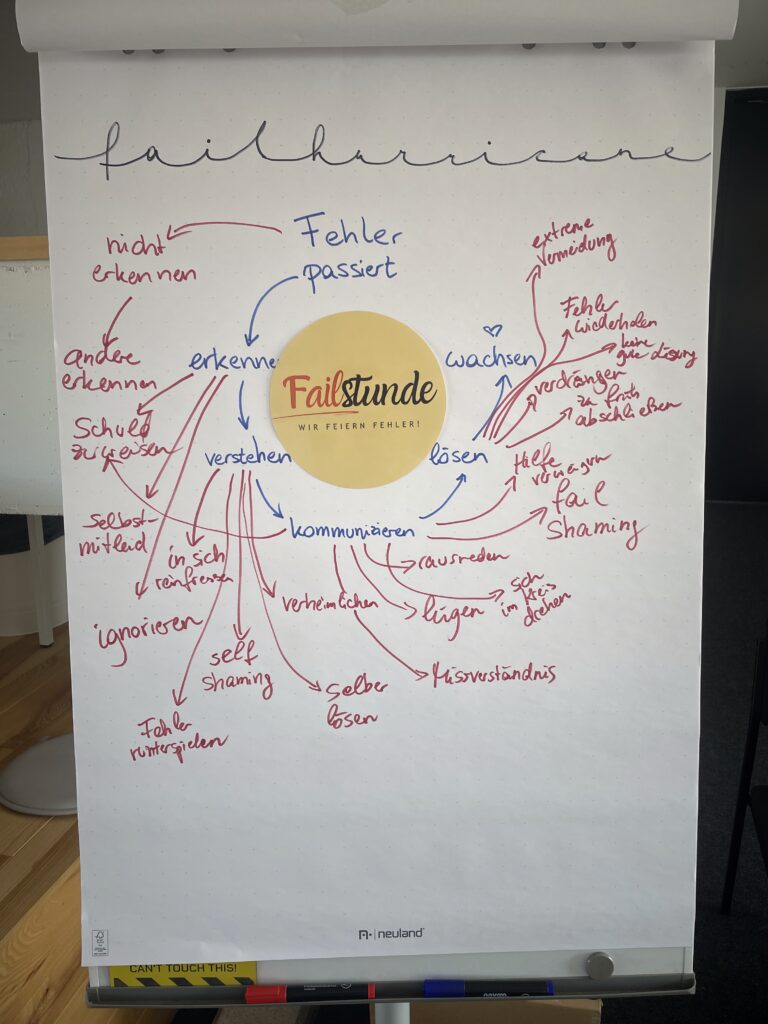 failhurricane
Fehler
passiert
nicht
erkennen
andere
erkennen
erkennen
Schuld
zuweisen
selbst-
mitleid
ignorieren
verstehen
in sich
reinfressen
Fehler
runterspielen
self
shaming
verheimlichen
selber
lösen
kommunizieren
rausreden
lügen
sich
im Kreis
drehen
Missverständnis
Hilfe
verweigern
fail
shaming
lösen
extreme
Vermeidung
Fehler
wiederholen
keine
gute Lösung
verdrängen
zu früh
abschließen
wachsen
Failstunde
WIR FEIERN FEHLER!
neuland
CAN'T TOUCH THIS!